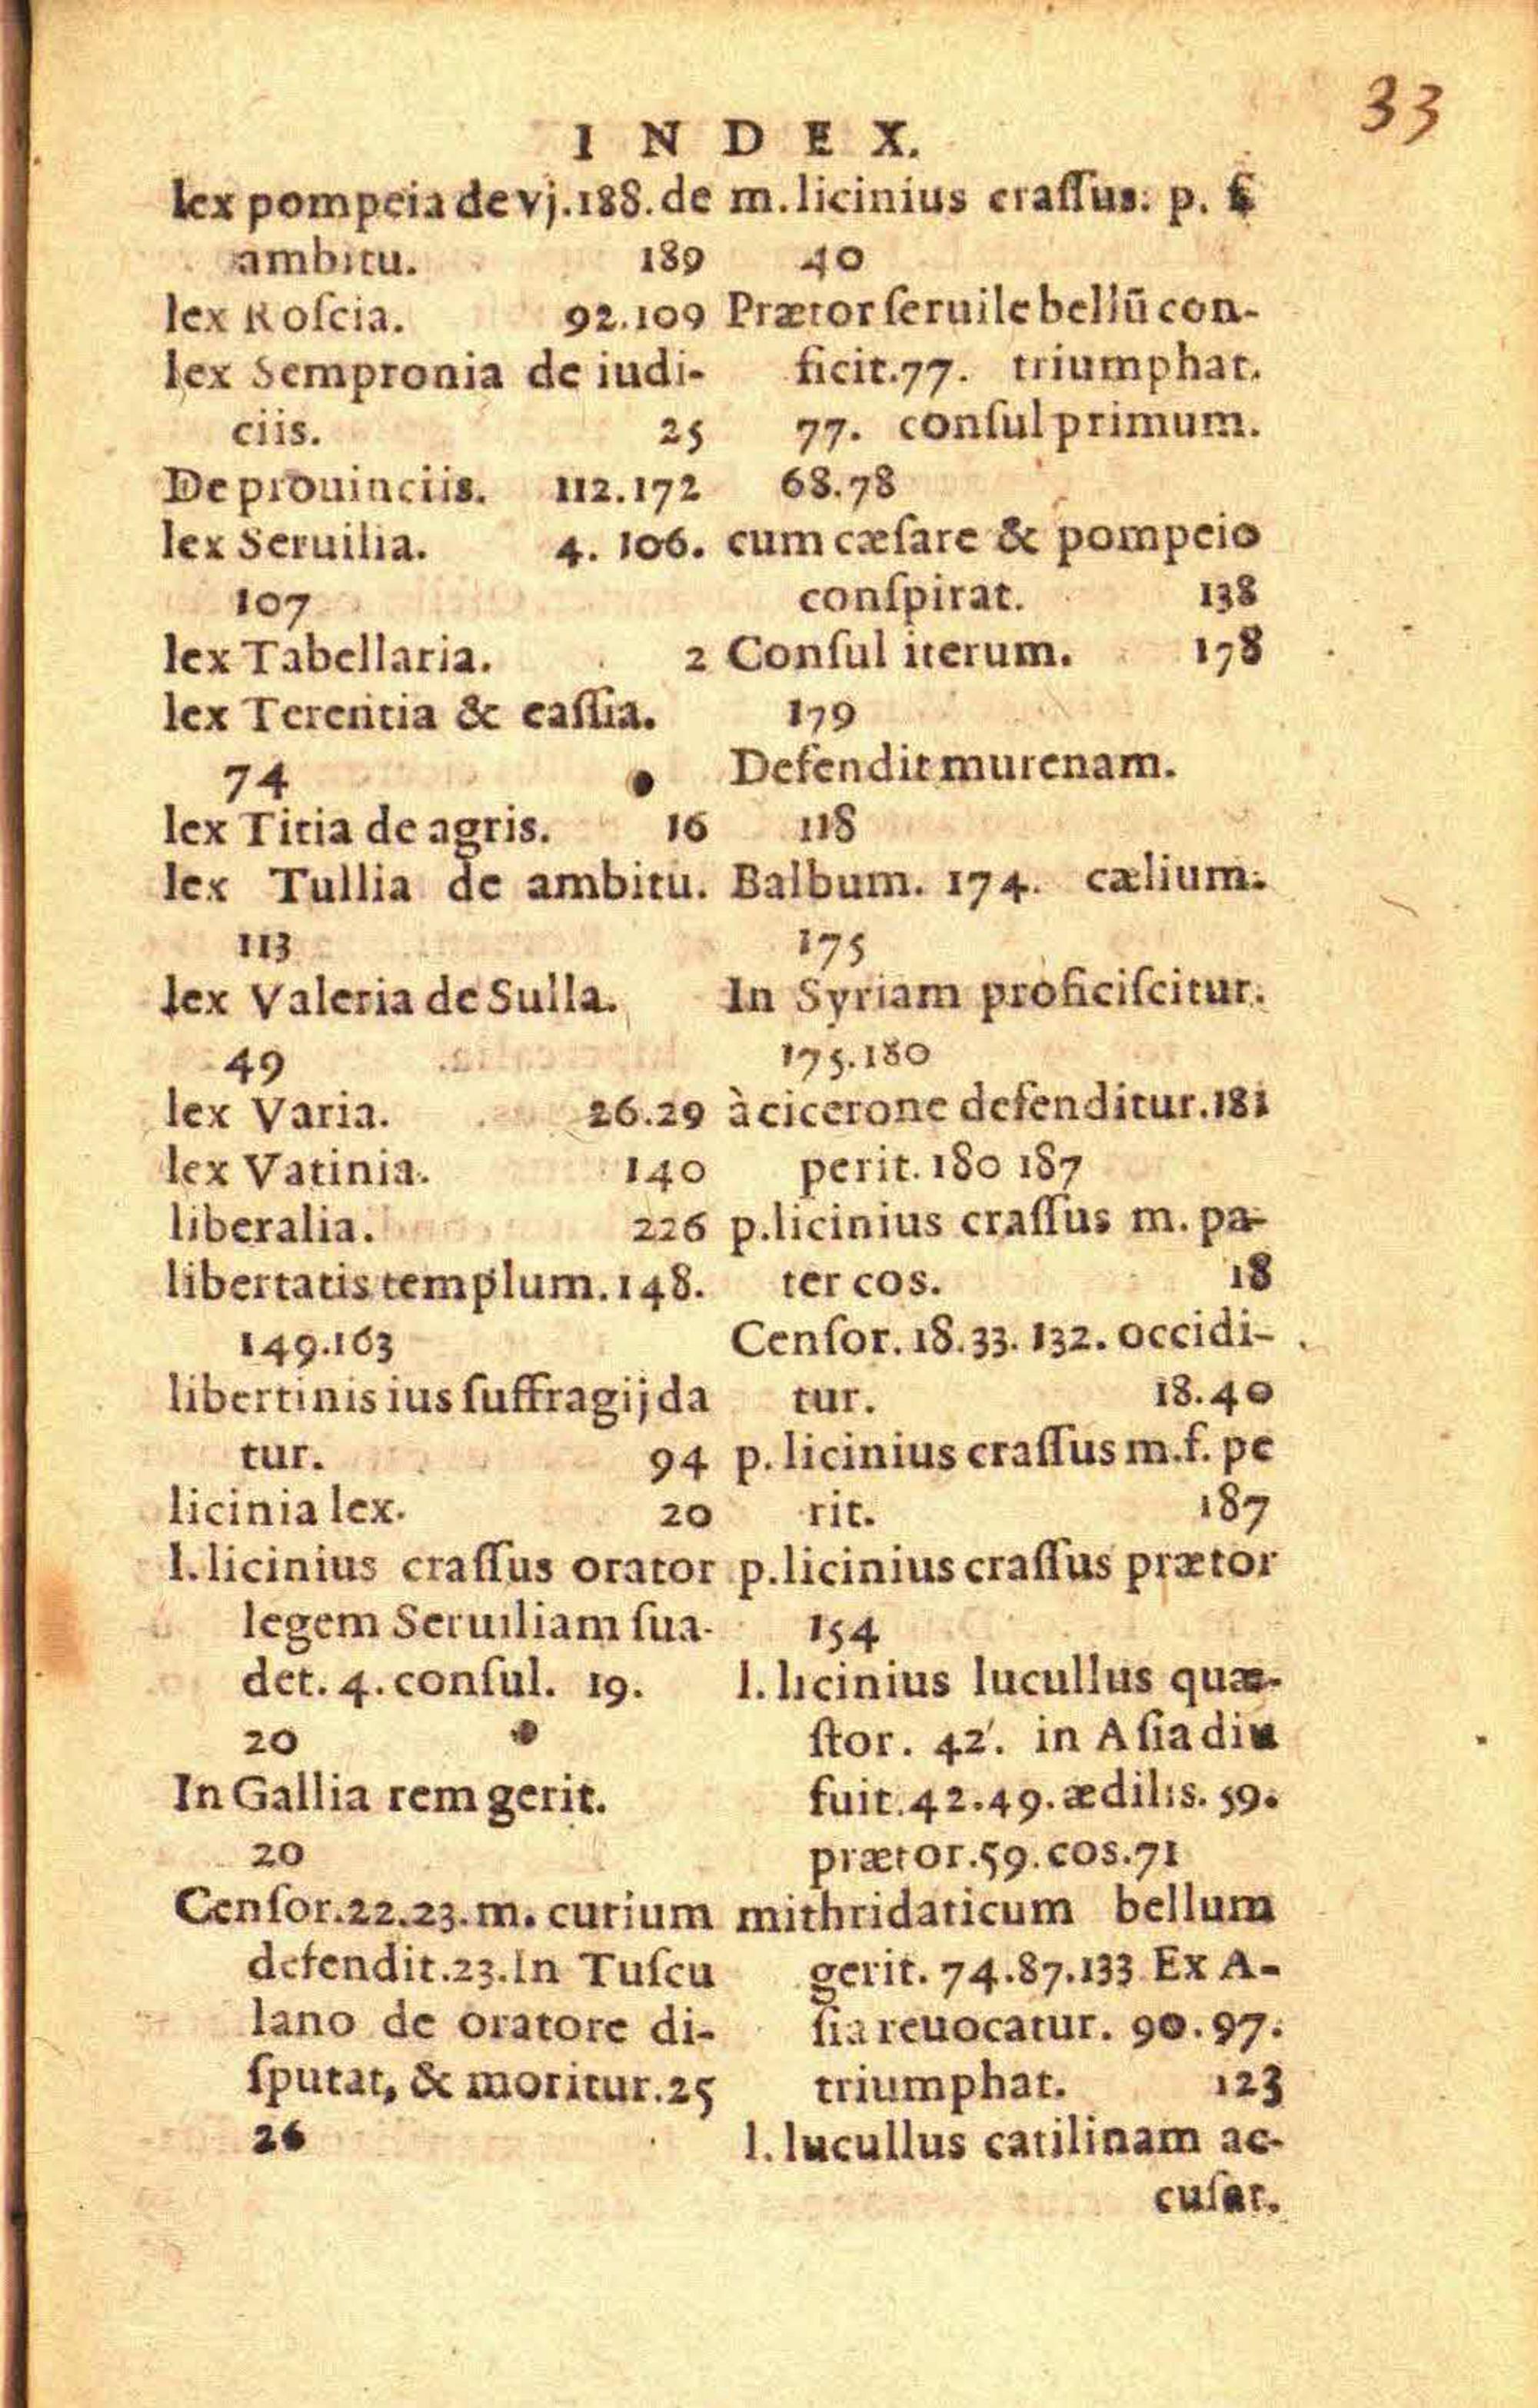 33
INDEX.
lex pompeia de vj.188. de
ambitu. 189
lex Roſcia. 92.109
lex Sempronia de iudi-
ciis. 25
De prouinciis. 112.172
lex Seruilia. 4. 106.
107
lex Tabellaria. 2
lex Terentia & caſſia.
74
lex Titia de agris. 16
lex Tullia de ambitu.
113
lex Valeria de Sulla.
49
lex Varia. 26.29
lex Vatinia. 140
liberalia. 226
libertatis templum. 148.
149.163
libertinis ius ſuffragij da
tur. 94
licinia lex. 20
l. licinius craſſus orator
legem Seruiliam ſua-
det. 4. conſul. 19.
20
In Gallia rem gerit.
20
Cenſor.22.23. m. curium
defendit.23. In Tuſcu
lano de oratore di-
ſputat, & moritur.25
26
m. licinius craſſus. p.
40
Prætor ſeruile bellū con-
ficit.77. triumphat.
77. conſul primum.
68.78
cum cæſare & pompeio
conſpirat. 138
Conſul iterum. 178
179
Defendit murenam.
118
Balbum. 174. cælium.
175
In Syriam proficiſcitur.
175.180
à cicerone defenditur.181
perit. 180 187
p. licinius craſſus m. pa-
ter cos. 18
Cenſor. 18.33. 132. occidi-
tur. 18.40
p. licinius craſſus m.f. pe
rit. 187
p. licinius craſſus prætor
154
l. licinius lucullus quæ-
ſtor. 42. in Aſia diu
fuit. 42.49. ædilis. 59.
prætor. 59. cos. 71
mithridaticum bellum
gerit. 74.87.133 Ex A-
ſia reuocatur. 90.97.
triumphat. 123
l. lucullus catilinam ac-
cuſat.